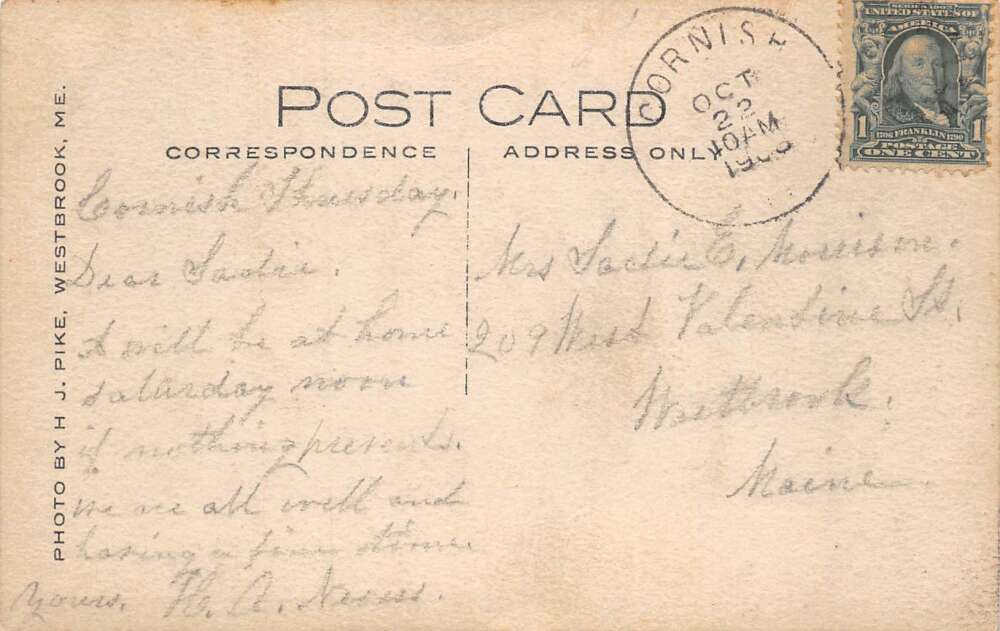 POST CARD
CORRESPONDENCE
ADDRESS ONLY
PHOTO BY H J. PIKE, WESTBROOK, ME.
CORNISH
OCT
22
10AM
SERIES 1902
UNITED STATES OF
AMERICA
1 1
1706 FRANKLIN 1790
POSTAGE
ONE CENT
Cornish Thursday.
Dear Sadie.
I will be at home
saturday noon
if nothing presents.
we re all well and
having a fine time
yours. H. A.
Mrs Sadie E. Morrison.
209 West Valentine St.
Westbrook.
Maine.